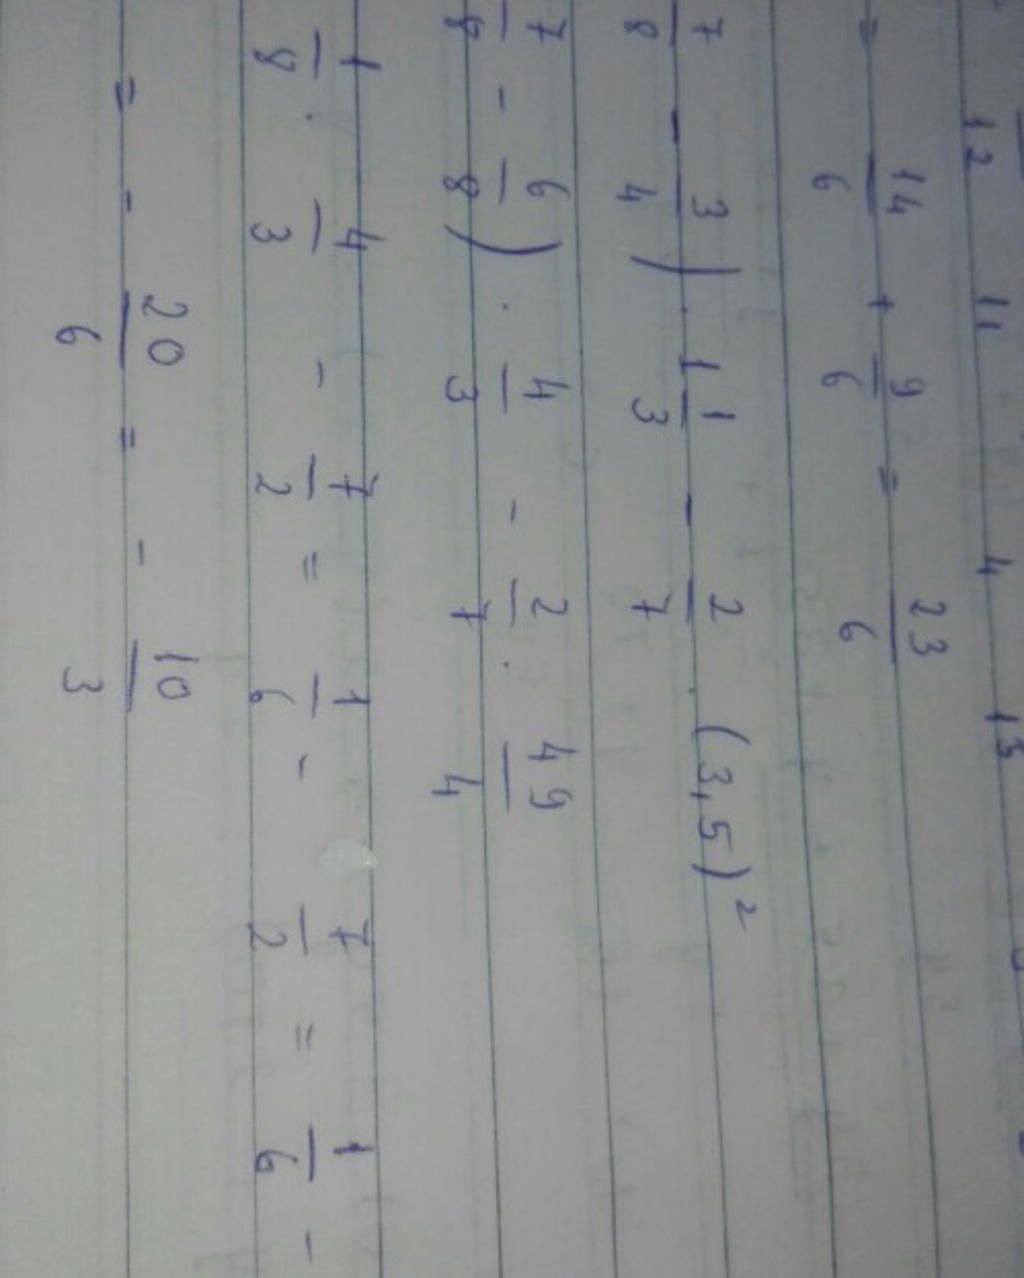 12 11 4 13
= 14/6 + 9/6 = 23/6
7/8 - 3/4) · 1 1/3 - 2/7 · (3,5)²
7/8 - 6/8) · 4/3 - 2/7 · 49/4
1/8 · 4/3 - 7/2 = 1/6 - 7/2 = 1/6 -
= - 20/6 = - 10/3